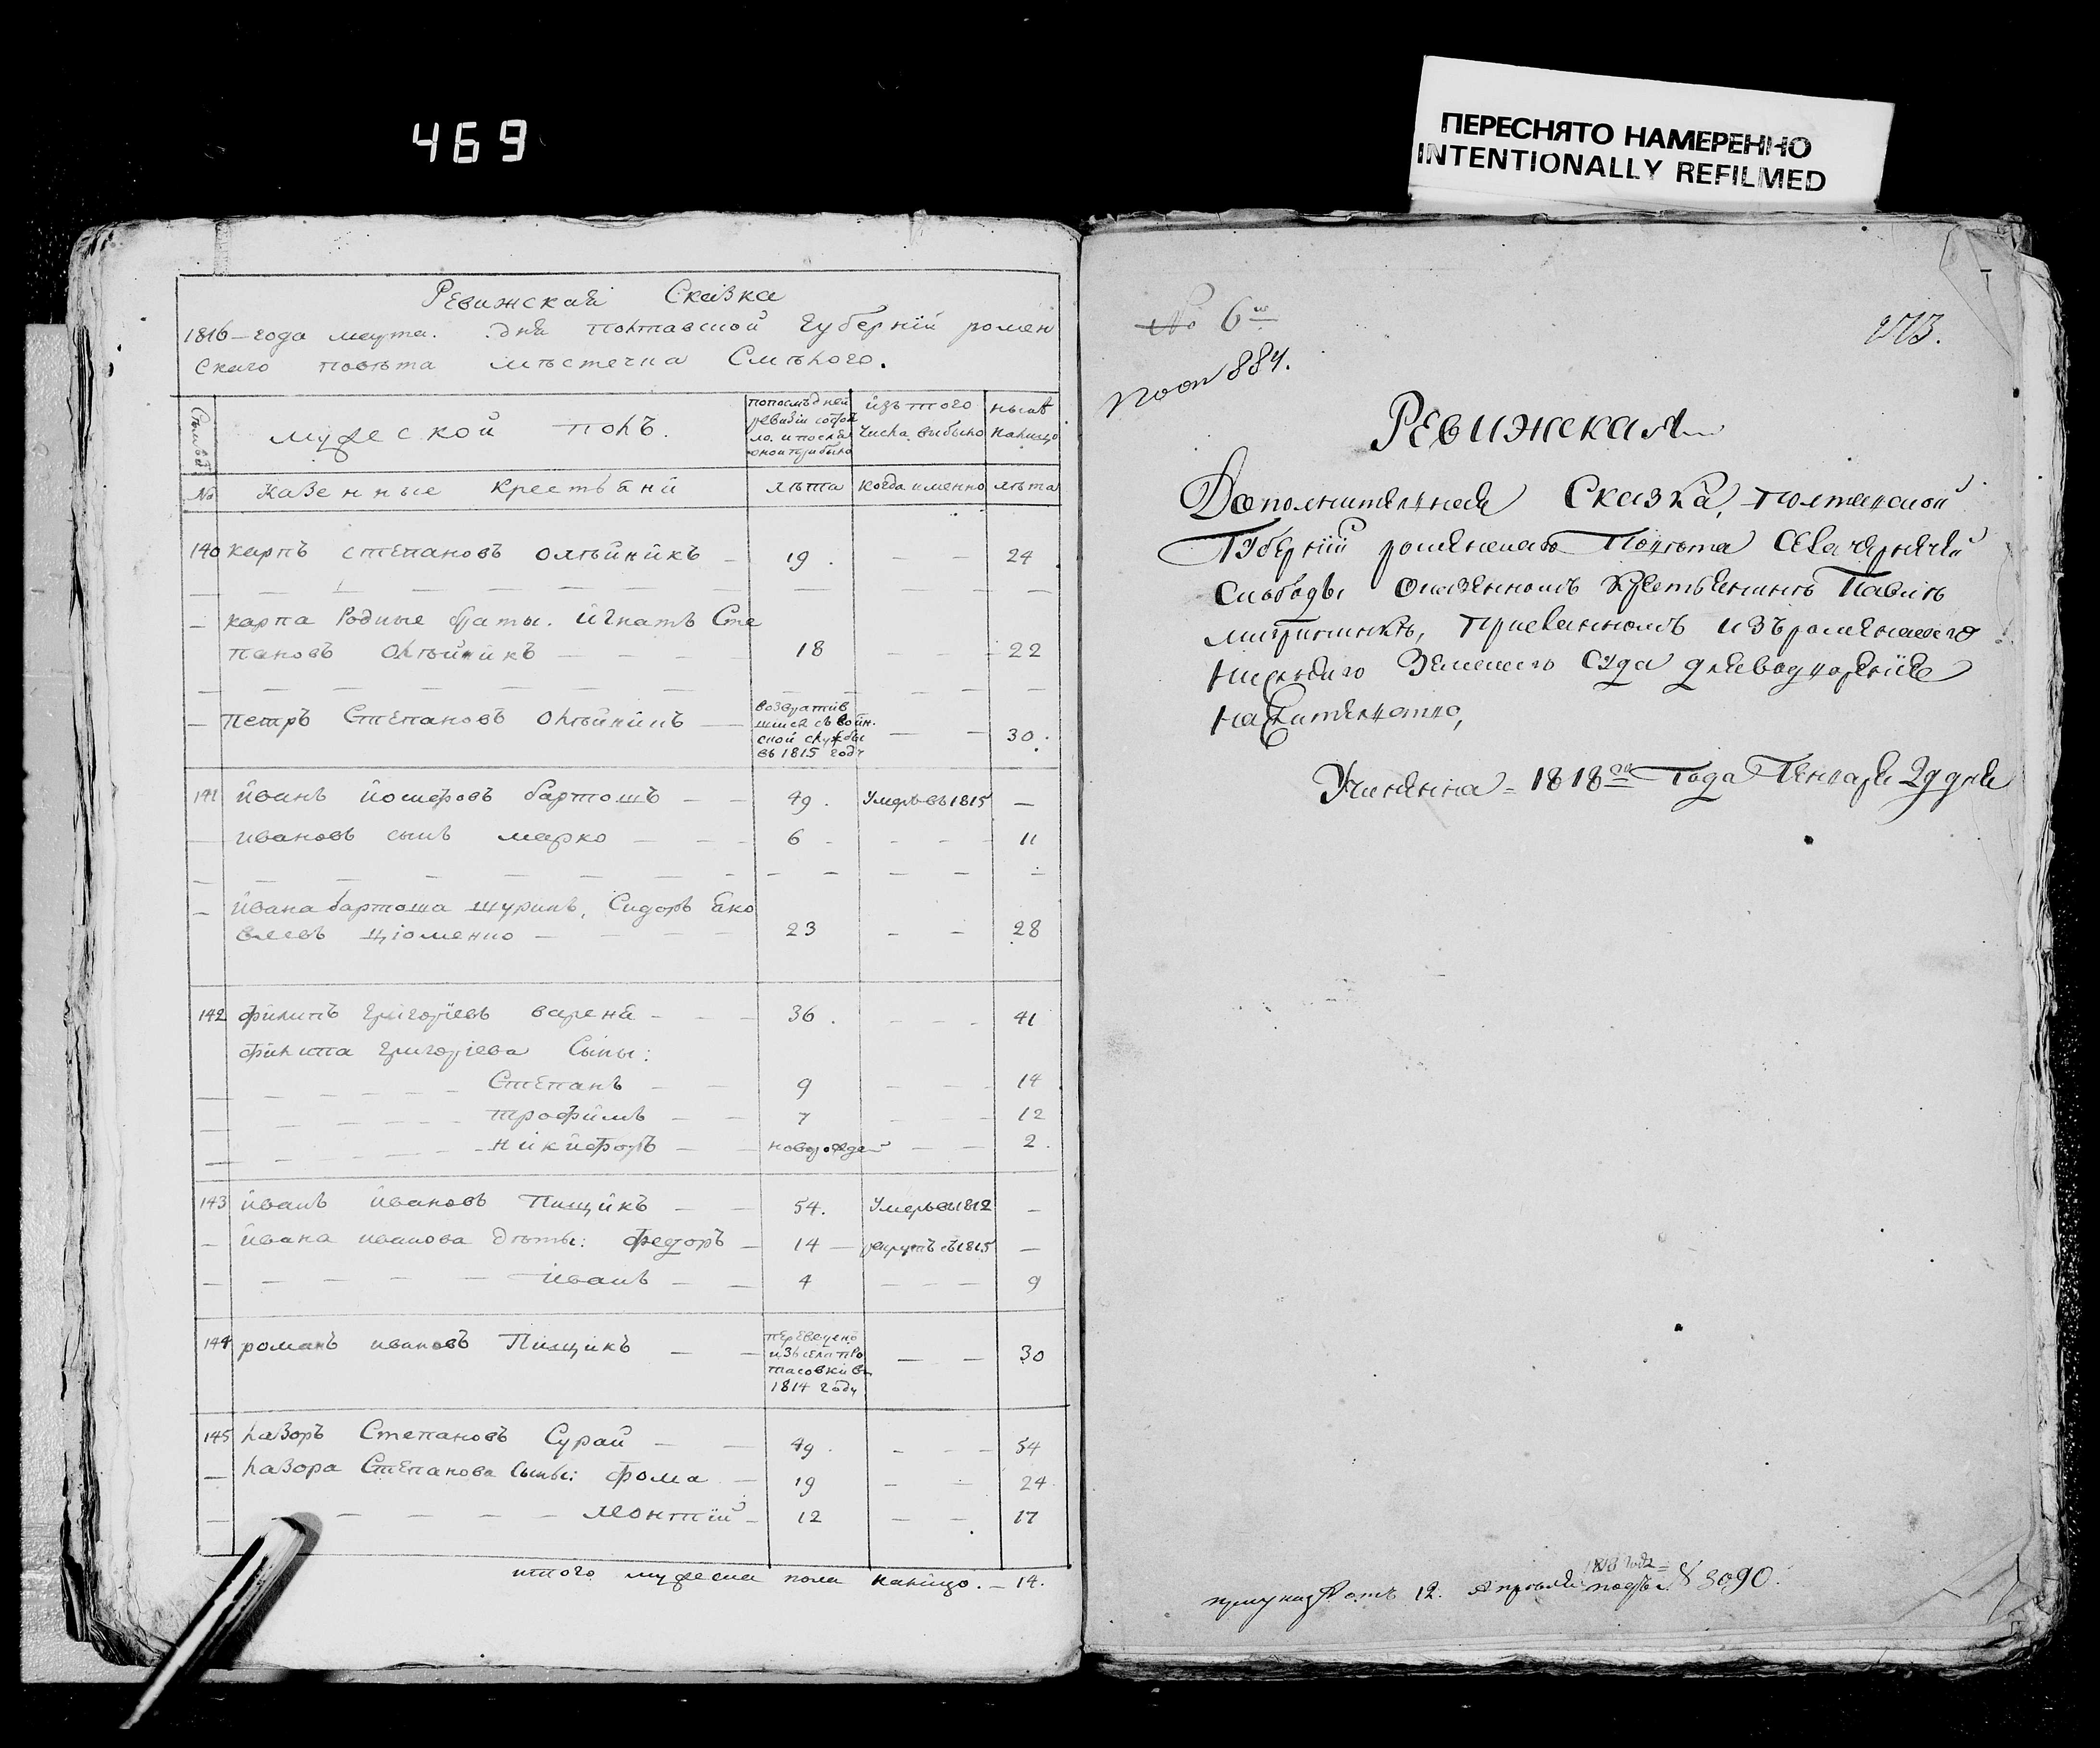 469
ПЕРЕСНЯТО НАМЕРЕННО
INTENTIONALLY REFILMED
Ревижская Сказка
1816-года маута. дня полтавской Губернїй ромен
скаго повѣта мѣстечка Смѣлого.
мужеской полъ.
попослѣдней ревизїи состоя ло. и послѣ оной прибыло
изъ того числа выбыло
нынѣ налицо
№ казенные крестьяни
лѣта
когда именно
лѣта
140 карпъ степановъ олѣйникъ 19 24
карпа Родные браты. Игнатъ Сте
пановъ Олѣйникъ 18 22
Петръ Степановъ Олѣйникъ
возвратив
шися съ воин.
ской службы
въ 1815 году
30
141 иванъ йосифовъ бартошъ 49 Умеръ въ 1815
ивановъ сынъ марко 6 11
ивана бартоша шуринъ, Сидоръ яко
влевъ 23 28
142 филипъ григорїевъ варена 36 41
филипа григорїева Сыны:
Степанъ 9 14
трофимъ 7 12
никифоръ новорожден 2
143 иванъ ивановъ Пищикъ 54. Умеръ въ 1812
ивана иванова дѣты: федоръ 14 рекрутъ въ 1815
иванъ 4 9
144 романъ ивановъ Пищикъ
переведенъ
изъ села про
тасовки въ
1814 году
30
145 лазоръ Степановъ Сурай 49 54
лазора Степанова Сыны: фома 19 24
леонтїй 12 17
итого мужеска пола налицо. 14.
№ 6
273.
884.
Ревижская
Дополнительная Сказка, полтавской
Губернїй роменскаго Повѣта Села чернечей
Слободы Казенномъ Крестьянинѣ Павлѣ
присланномъ изъ роменскаго
нижняго Земскаго Суда для водворенїя
на жительство,
Учинена 1818го Года Генваря 29 дня
1818 года
отъ 12. Апреля подъ № 3090.